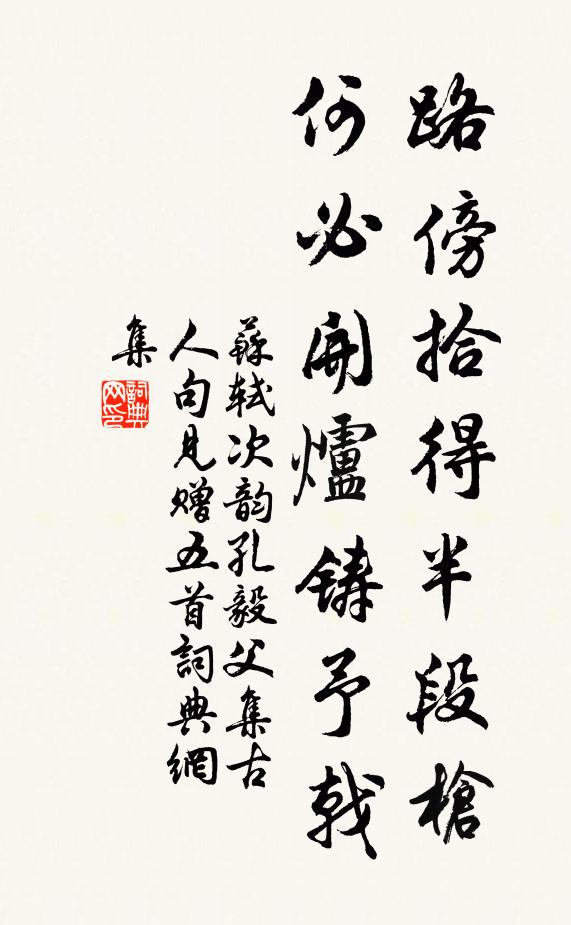 路傍拾得半段槍
何必開爐鑄予戟
蘇軾次韵孔毅父集古
人句見贈五首詞典網
集
詞典网印